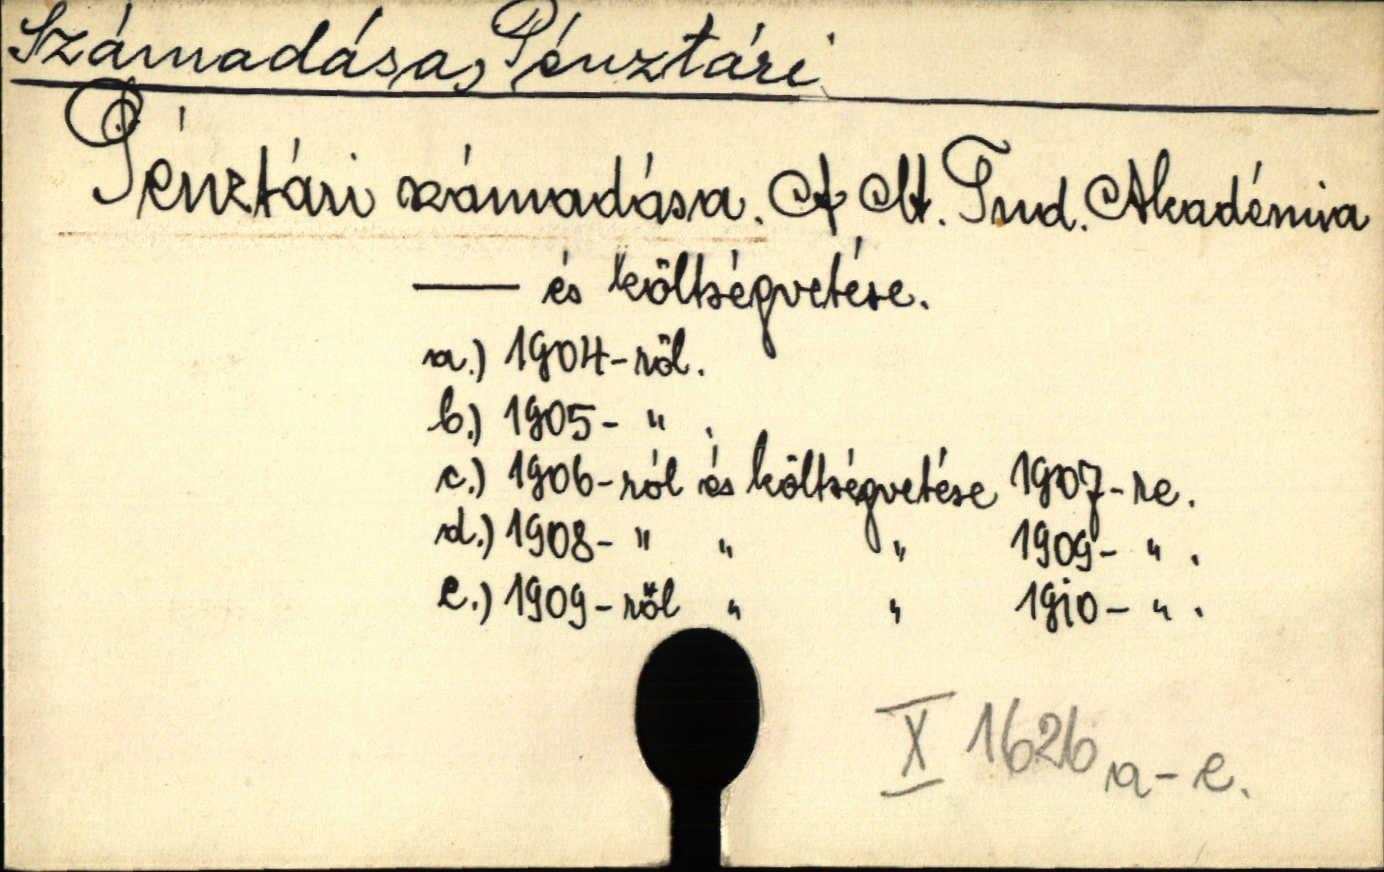 Számadása, Pénztári
Pénztári számadása. A M. Tud. Akadémia
— és költségvetése.
a.) 1904-ről.
b.) 1905- " .
c.) 1906-ról és költségvetése 1907-re.
d.) 1908- " " " 1909- " .
e.) 1909-ről " " 1910- " .
X 1626 a-e.